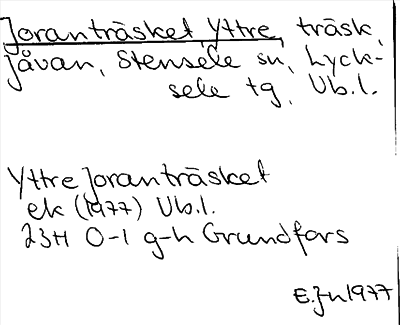 Joranträsket, Yttre, träsk,
Jåvan, Stensele sn, Lyck-
sele tg, Vb.l.
Yttre Joranträsket
ek (1977) Vb.l.
23H 0-1 g-h Grundfors
E.Jn 1977